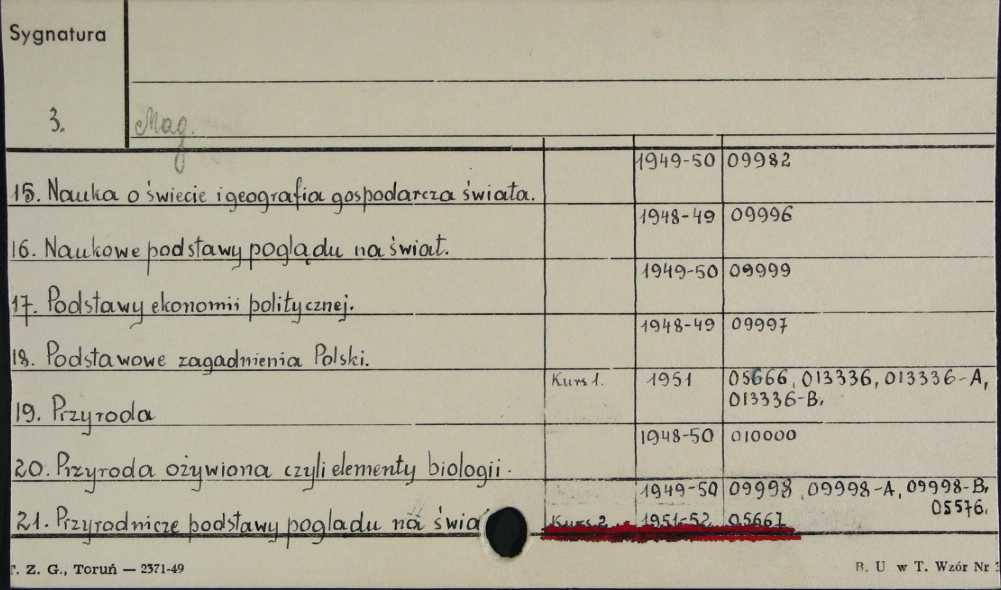 Sygnatura
3. Mag.
1949-50 09982
15. Nauka o świecie i geografia gospodarcza świata.
1948-49 09996
16. Naukowe podstawy poglądu na świat.
1949-50 09999
17. Podstawy ekonomii politycznej.
1948-49 09997
18. Podstawowe zagadnienia Polski.
Kurs 1. 1951 05666, 013336, 013336-A,
013336-B.
19. Przyroda
1948-50 010000
20. Przyroda ożywiona czyli elementy biologii.
1949-50 09998, 09998-A, 09998-B,
05576.
21. Przyrodnicze podstawy pogladu na świa Kurs 2 1951-52 05667
T. Z. G., Toruń — 2371-49
B. U w T. Wzór Nr 3